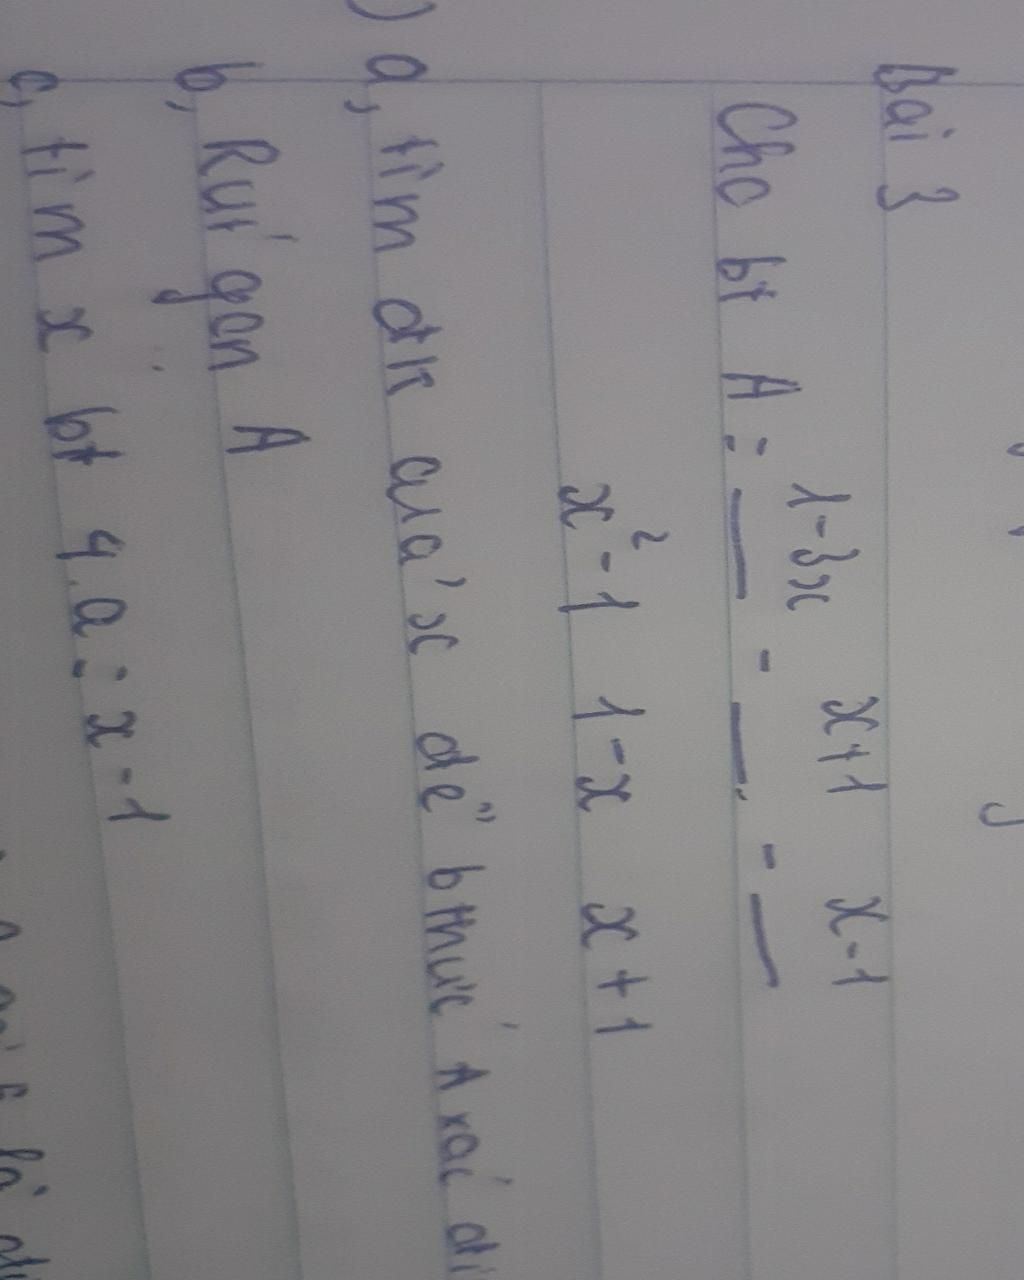 Bài 3
Cho bt A = 1-3x/x²-1 - x+1/1-x - x-1/x+1
a, tìm đk của x để bthức A xác đị
b, Rút gọn A
c, tìm x bt 4.a = x-1